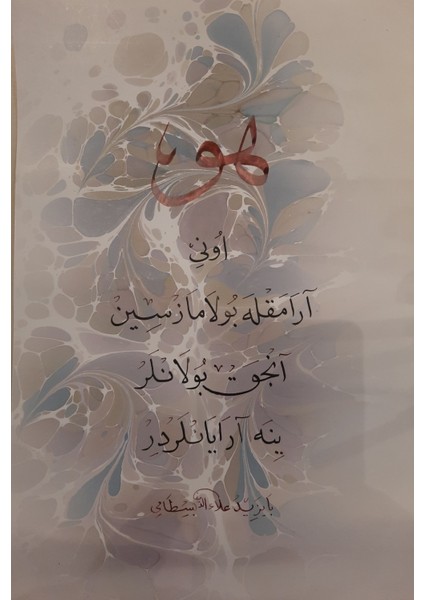 هو
اُونِي
آرَامَقْلَه بُولَامَازْسِين
آنْجَقْ بُولَانْلَرْ
يِنَه آرَايَانْلَرْدِرْ
بايزيد بسطامي